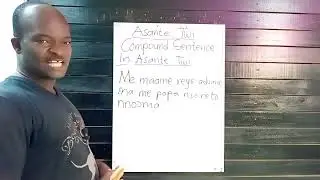 Asante Twi
Compound Sentence
In Asante Twi
Me maame reyɛ aduane
ɛna me papa nso reto
nnɔɔma